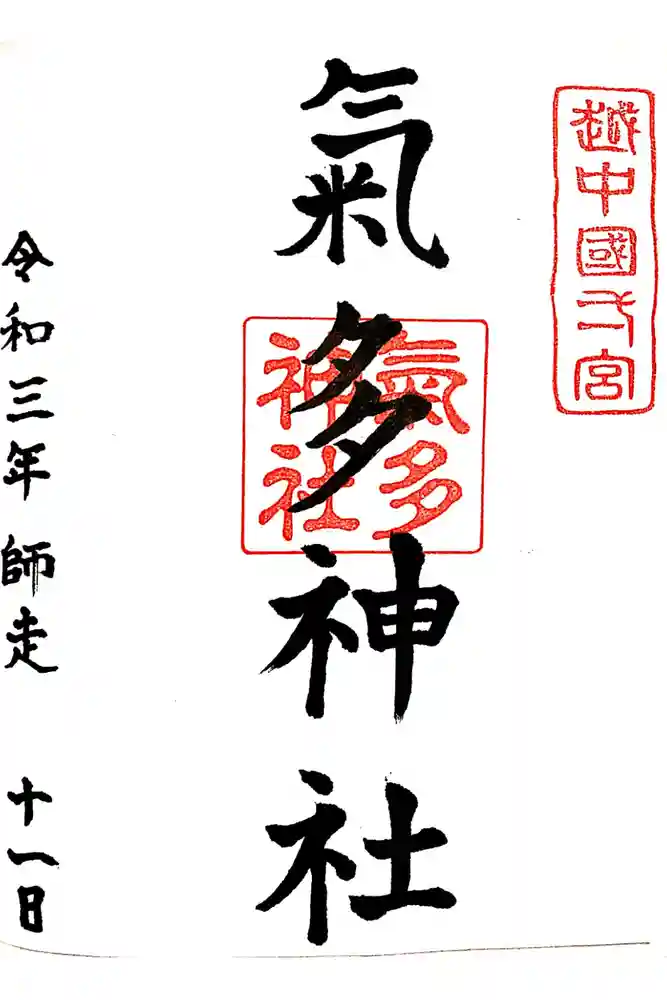 越中國一宮
氣多神社
氣多
神社
令和三年 師走 十一日